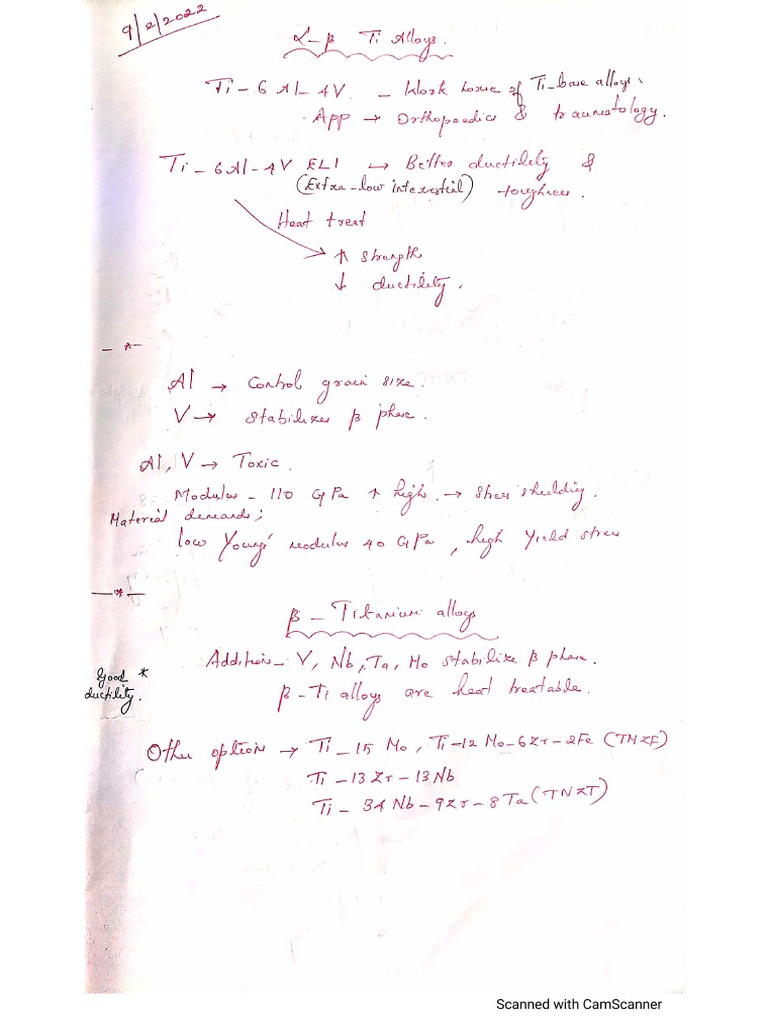 9/2/2022
α-β Ti Alloys.
Ti-6Al-4V. - Work horse of Ti-base alloys.
App → Orthopaedics & traumatology.
Ti-6Al-4V ELI → Better ductility &
(Extra-low interestial) toughness.
Heat treat
↑ strength
↓ ductility.
- * -
Al → Control grain size.
V → Stabilizes β phase.
Al, V → Toxic.
Modulus - 110 GPa ↑ high. → Stress sheilding.
Material demands;
low Young's modulus 40 GPa, high Yield stress
- * -
β - Titanium alloys
Addition - V, Nb, Ta, Mo stabilize β phase.
Good *
ductility.
β-Ti alloys are heat treatable.
Other option → Ti-15 Mo, Ti-12 Mo-6Zr-2Fe (TMZF)
Ti-13Zr-13Nb
Ti-34Nb-9Zr-8Ta (TNZT)
Scanned with CamScanner